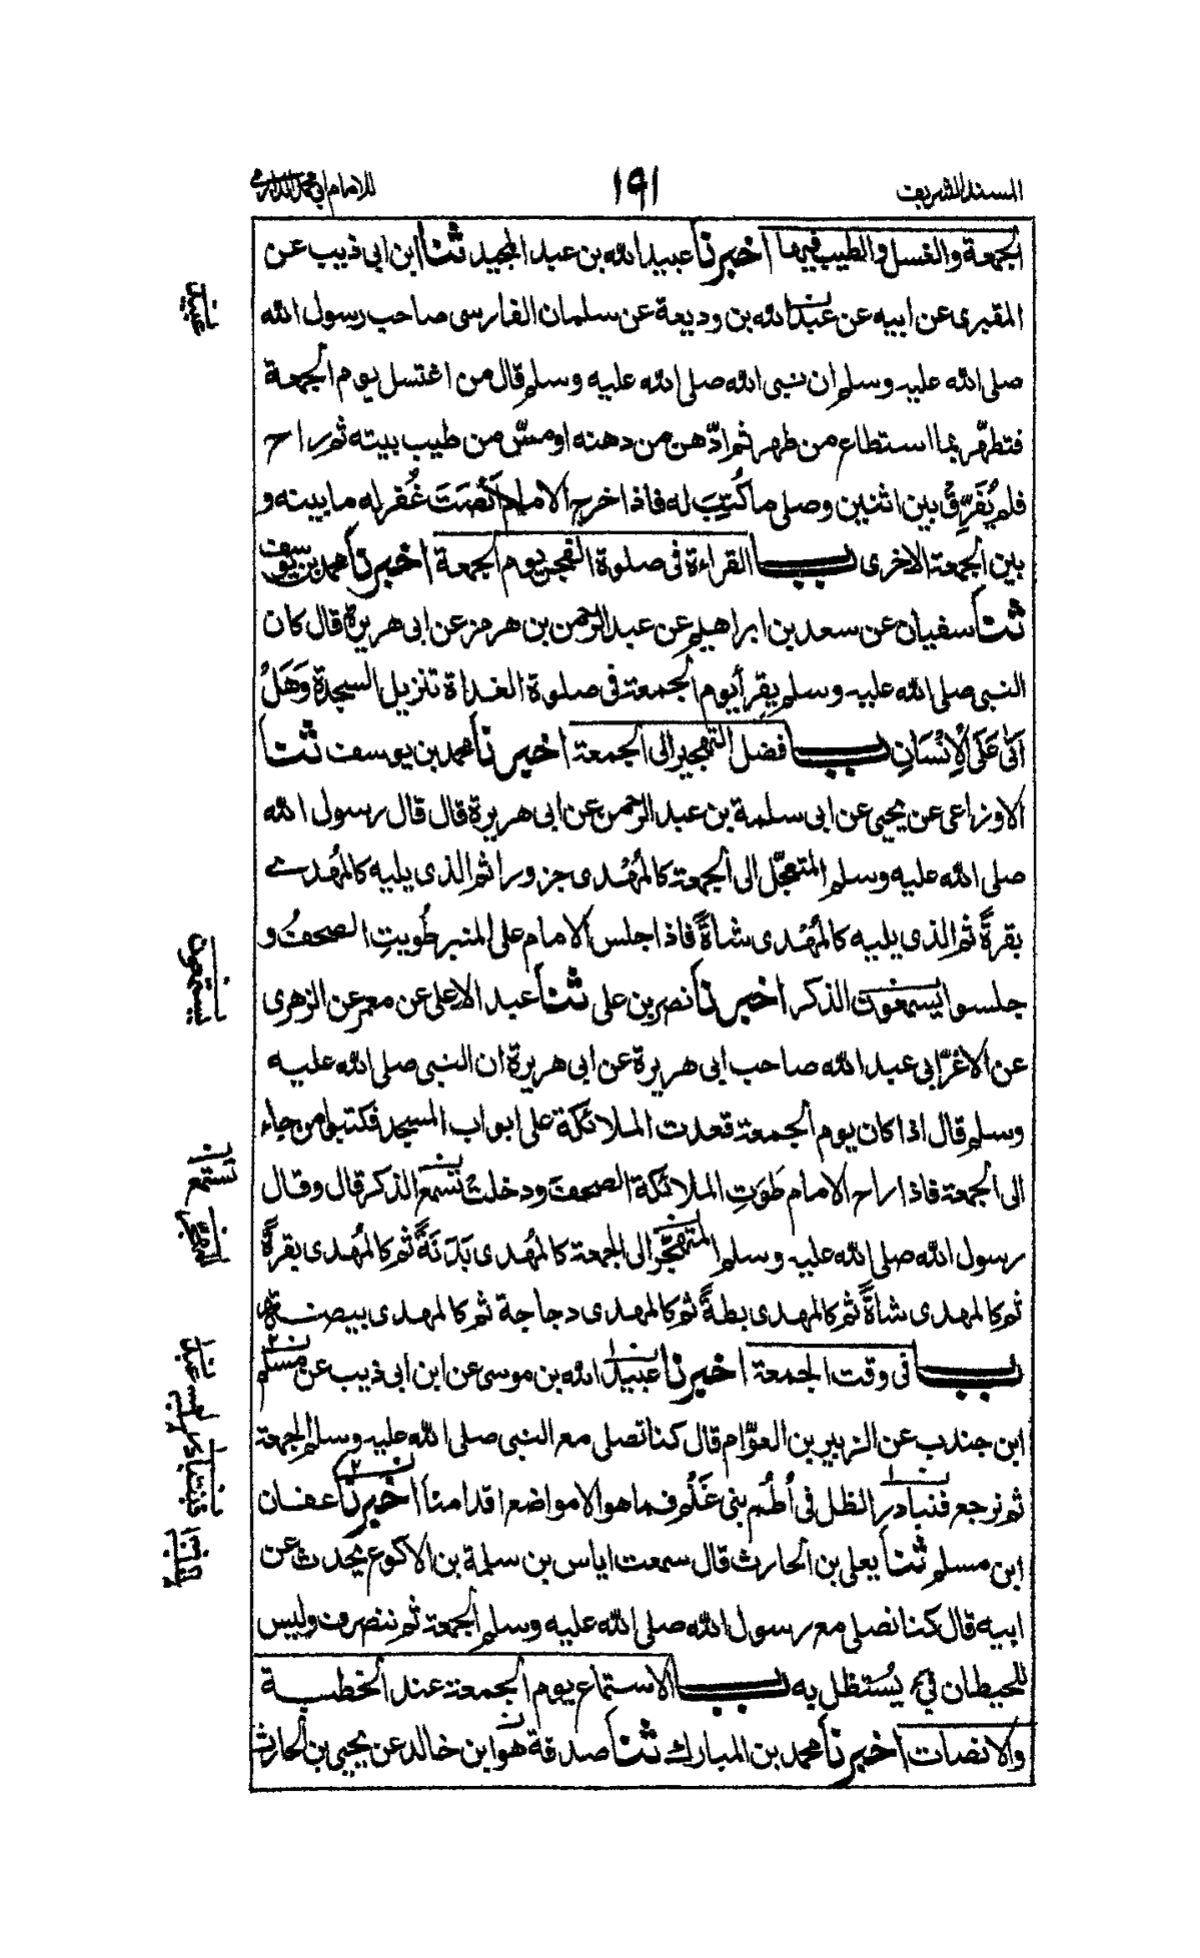 المسند الشريف ١٩١ للامام ابي محمد الدارمي
الجمعة والغسل والطيب فيها اخبرنا عبيد الله بن عبد المجيد ثنا ابن ابى ذيب عن
المقبرى عن ابيه عن عبد الله بن وديعة عن سلمان الفارسى صاحب رسول الله
صلى الله عليه وسلم ان نبى الله صلى الله عليه وسلم قال من اغتسل يوم الجمعة
فتطهّر بما استطاع من طهر ثم ادّهن من دهنه او مسّ من طيب بيته ثم راح
فلم يُفَرِّقْ بين اثنين وصلى ما كُتِبَ له فاذا خرج الامام اَنْصَتَ غُفر له ما بينه و
بين الجمعة الاخرى باب القراءة فى صلوة الفجر يوم الجمعة اخبرنا محمد بن يوسف
ثنا سفيان عن سعد بن ابراهيم عن عبد الرحمن بن هرمز عن ابى هريرة قال كان
النبى صلى الله عليه وسلم يقرأ يوم الجمعة فى صلوة الغداة تنزيل السجدة وَهَلْ
اَتٰى عَلَى الْاِنْسَانِ باب فضل التهجير الى الجمعة اخبرنا محمد بن يوسف ثنا
الاوزاعى عن يحيى عن ابى سلمة بن عبد الرحمن عن ابى هريرة قال قال رسول الله
صلى الله عليه وسلم المتعجّل الى الجمعة كالمُهْدى جزورا ثم الذى يليه كالمُهْدے
بقرةً ثم الذى يليه كالمُهْدى شاةً فاذا جلس الامام على المنبر طُويتِ الصحفُ و
جلسوا يسمعون الذكر اخبرنا نصر بن على ثنا عبد الاعلى عن معمر عن الزهرى
عن الاغرّ ابى عبد الله صاحب ابى هريرة عن ابى هريرة ان النبى صلى الله عليه
وسلم قال اذا كان يوم الجمعة قعدت الملائكة على ابواب المسجد فكتبوا من جاء
الى الجمعة فاذا راح الامام طَوَتِ الملائكة الصحف ودخلت تسمع الذكر قال وقال
رسول الله صلى الله عليه وسلم المتهجّر الى الجمعة كالمُهدى بَدَنَةً ثم كالمُهدى بقرةً
ثم كالمهدى شاةً ثم كالمهدى بطةً ثم كالمهدى دجاجة ثم كالمهدى بيضة
باب فى وقت الجمعة اخبرنا عبيد الله بن موسى عن ابن ابى ذيب عن مسلم
ابن جندب عن الزبير بن العوّام قال كنا نصلى مع النبى صلى الله عليه وسلم الجمعة
ثم نرجع فنبادر الظل فى اُطُم بنى غَنْم فما هو الا مواضع اقدامنا اخبرنا عفان
ابن مسلم ثنا يعلى بن الحارث قال سمعت اياس بن سلمة بن الاكوع يحدث عن
ابيه قال كنا نصلى مع رسول الله صلى الله عليه وسلم الجمعة ثم ننصرف وليس
للحيطان فئ يُسْتظل به باب الاستماع يوم الجمعة عند الخطبة
والانصات اخبرنا محمد بن المبارك ثنا صدقة هو ابن خالد عن يحيى بن الحارث
يستمعون
تستمع